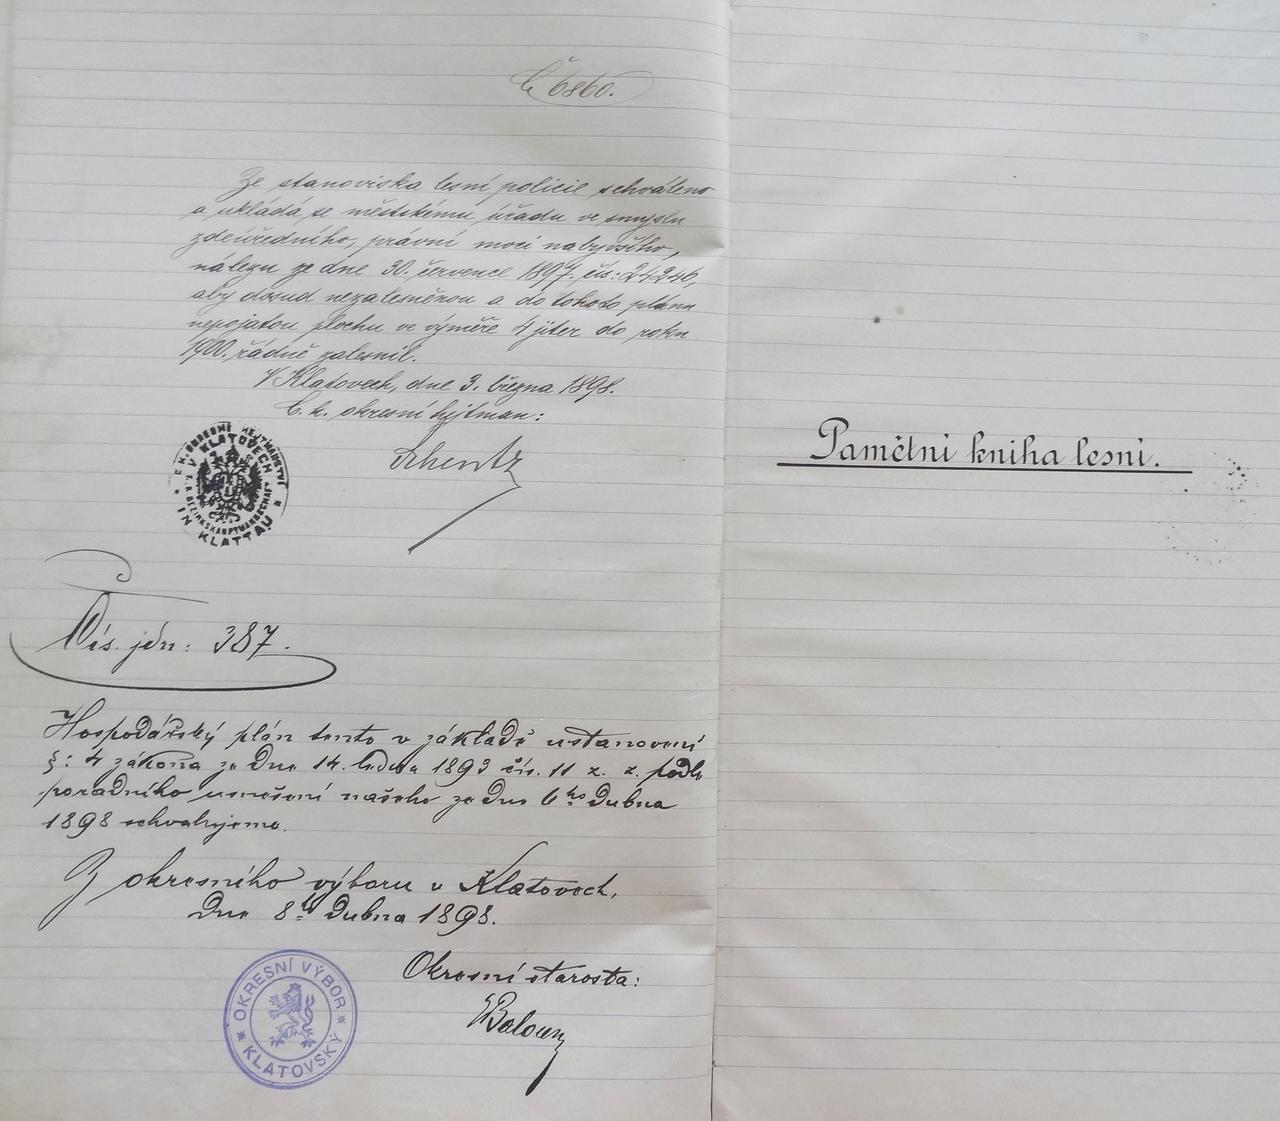 Č 6860.
Ze stanoviska lesní policie schváleno
a ukládá se městskému úřadu ve smyslu
zdeúředního, právní moci nabyvšího,
nálezu ze dne 30. července 1897, čís: 24246,
aby dosud nezalesněnou a do tohoto plánu
nepojatou plochu ve výměře 4 jiter do roku
1900. řádně zalesnil.
V Klatovech, dne 3. března 1898.
C. k. okresní hejtman:
C. K. OKRESNÍ HEJTMANSTVÍ
V KLATOVECH
K. K. BEZIRKSHAUPTMANNSCHAFT
IN KLATTAU
Čís. jdn: 387.
Hospodářský plán tento v základě ustanovení
§: 4 zákona ze dne 14. ledna 1893 čís. 11 z. z. podle
poradního usnešení našeho ze dne 6ho dubna
1898 schvalujeme.
Z okresního výboru v Klatovech,
dne 8ho dubna 1898.
Okresní starosta:
OKRESNÍ VÝBOR
KLATOVSKÝ
Pamětní kniha lesní.